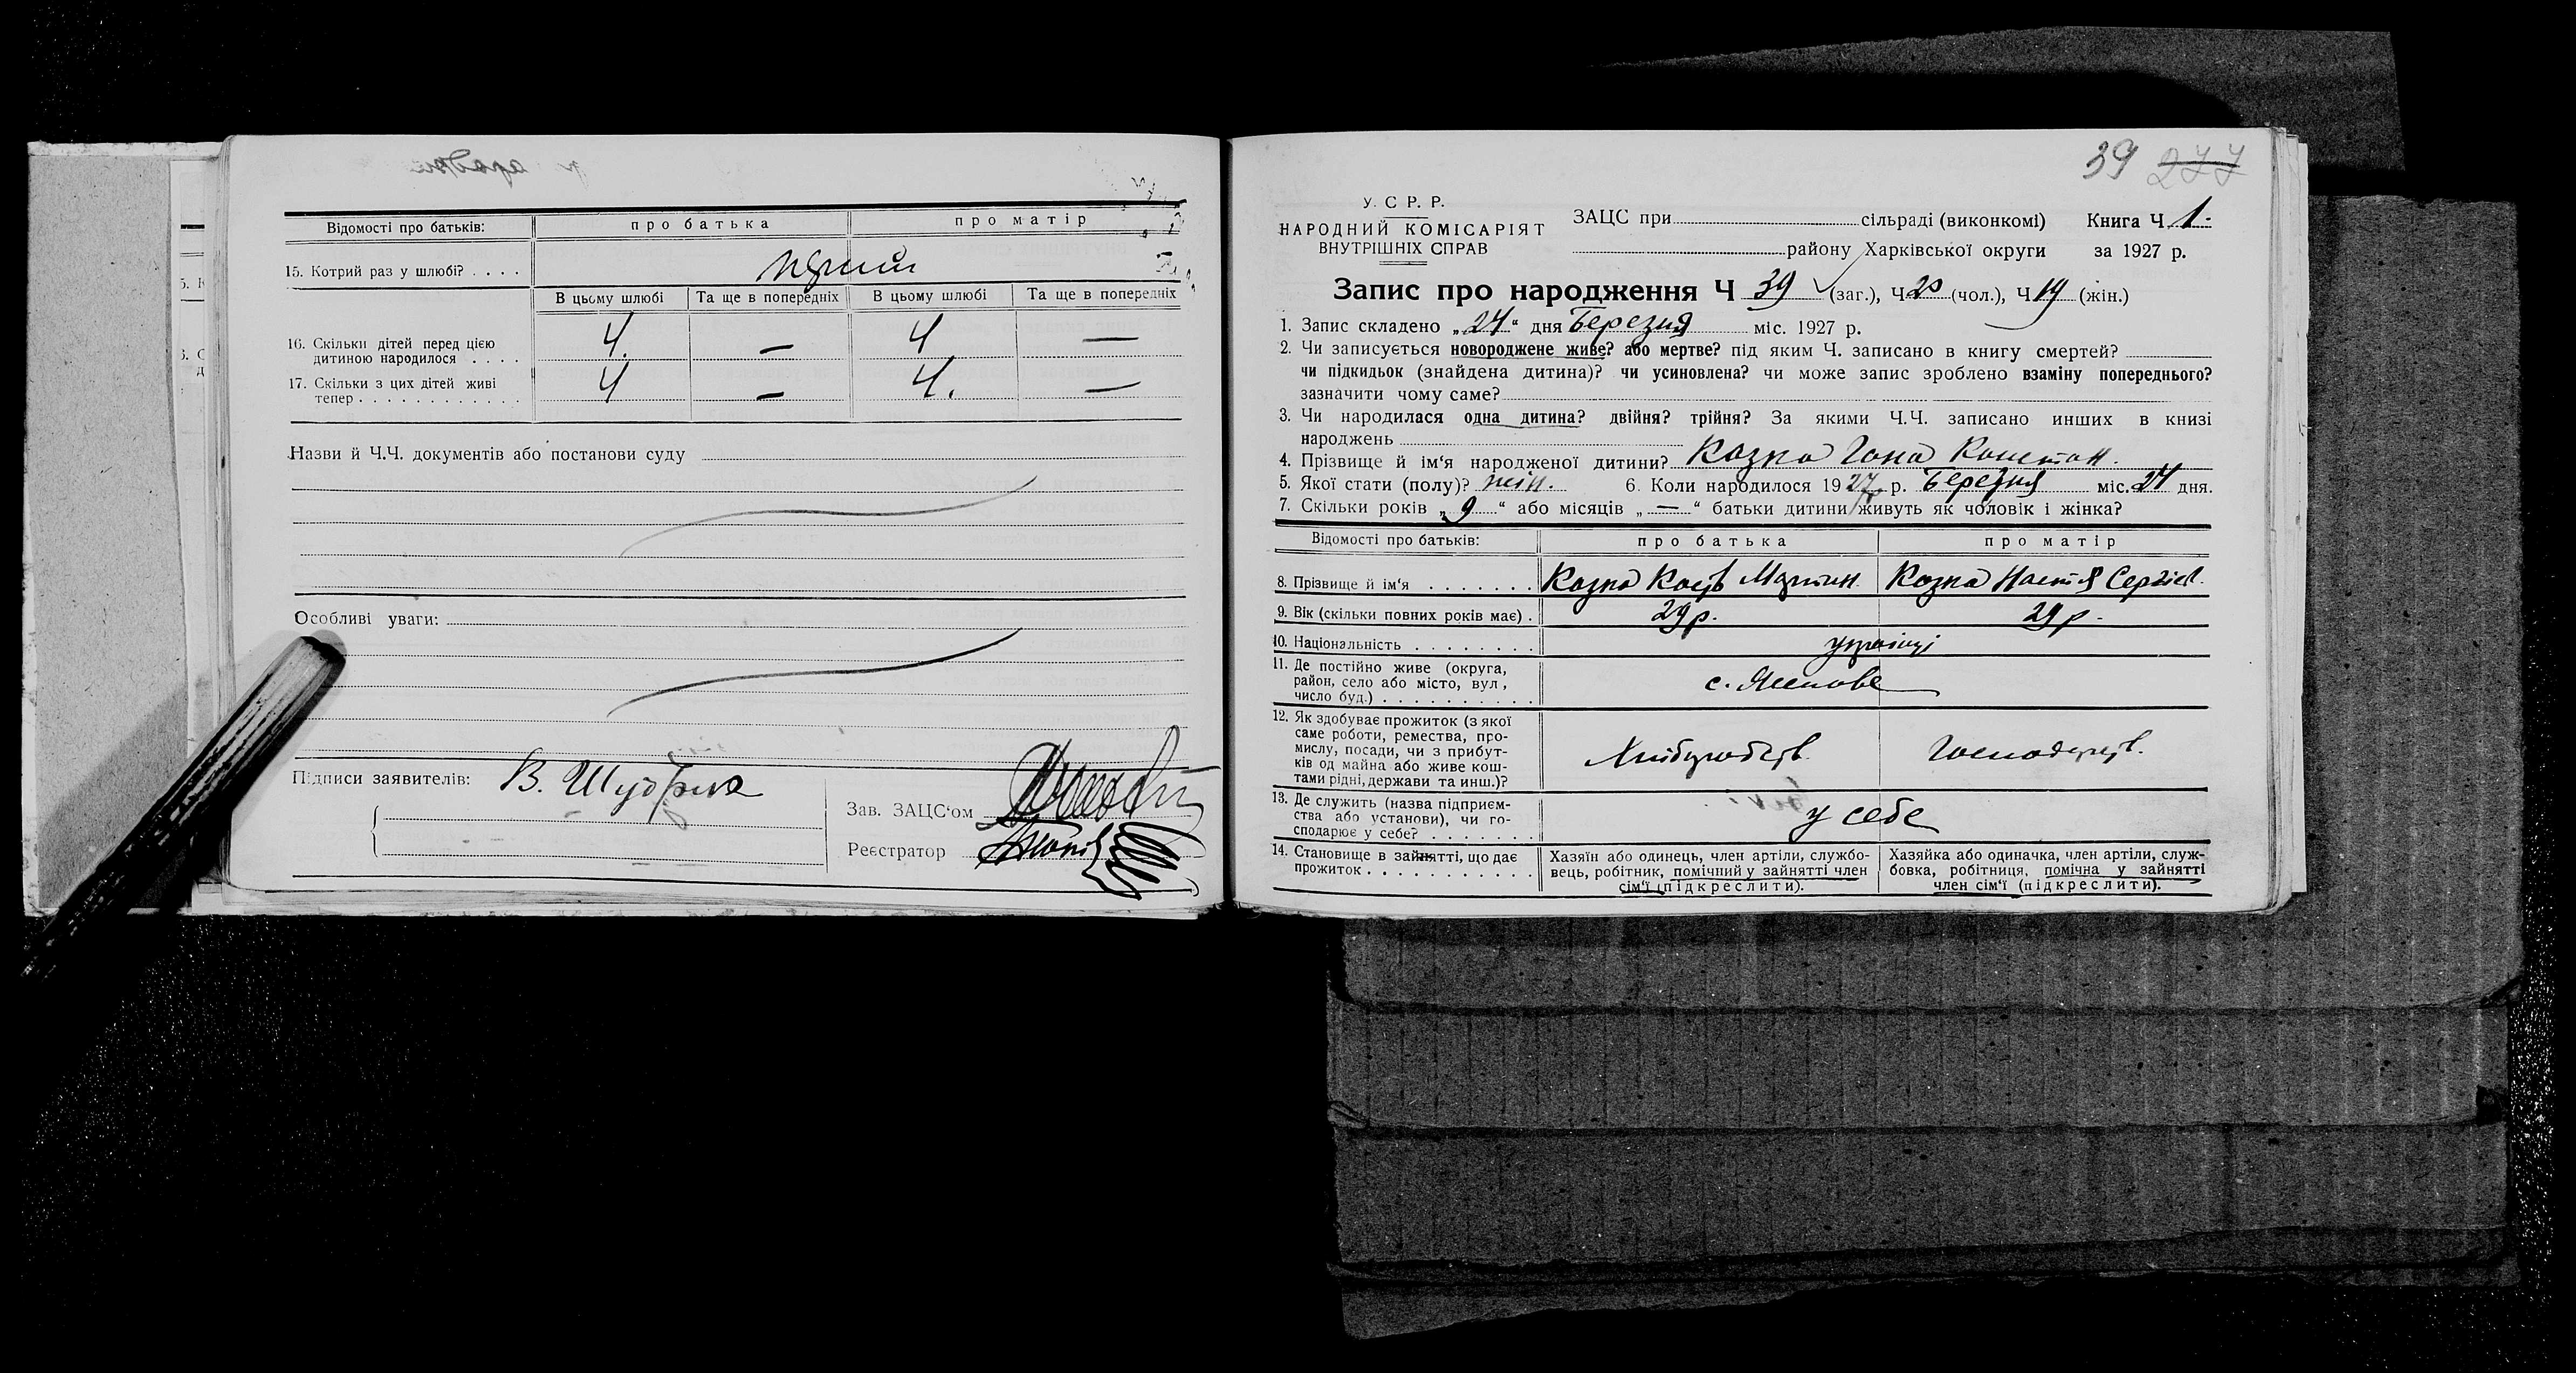 Відомості про батьків: про батька про матір
15. Котрий раз у шлюбі? . . . .
В цьому шлюбі Та ще в попередніх В цьому шлюбі Та ще в попередніх
16. Скільки дітей перед цією
дитиною народилося . . . . 4. — 4 —
17. Скільки з цих дітей живі
тепер . . . . . . . . . . . . 4 — 4. —
Назви й Ч.Ч. документів або постанови суду
Особливі уваги:
Підписи заявителів: В.
Зав. ЗАЦС‘ом
Реєстратор
39 277
У. С. Р. Р.
НАРОДНИЙ КОМІСАРІЯТ
ВНУТРІШНІХ СПРАВ
ЗАЦС при сільраді (виконкомі) Книга Ч. 1.
району Харківської округи за 1927 р.
Запис про народження Ч 39 (заг.), Ч 20 (чол.), Ч 19 (жін.)
1. Запис складено „24“ дня Березня міс. 1927 р.
2. Чи записується новороджене живе? або мертве? під яким Ч. записано в книгу смертей?
чи підкидьок (знайдена дитина)? чи усиновлена? чи може запис зроблено взаміну попереднього?
зазначити чому саме?
3. Чи народилася одна дитина? двійня? трійня? За якими Ч.Ч. записано инших в книзі
народжень
4. Прізвище й ім‘я народженої дитини?
5. Якої стати (полу)? жін. 6. Коли народилося 1927 р. Березня міс. 24 дня.
7. Скільки років „9“ або місяців „—“ батьки дитини живуть як чоловік і жінка?
Відомості про батьків: про батька про матір
8. Прізвище й ім‘я . . . . . . . Настя Сергієв.
9. Вік (скільки повних років має) . 29 р. 29 р.
10. Національність . . . . . . . . українці
11. Де постійно живе (округа,
район, село або місто, вул,
число буд.) . . . . . . . . . . с.
12. Як здобуває прожиток (з якої
саме роботи, ремества, про-
мислу, посади, чи з прибут-
ків од майна або живе кош-
тами рідні, держави та инш.)? Хліборобств. Господарств.
13. Де служить (назва підприєм-
ства або установи), чи го-
сподарює у себе? . . . . . . . у себе
14. Становище в зайнятті, що дає
прожиток . . . . . . . . . . .
Хазяїн або одинець, член артілі, службо-
вець, робітник, помічний у зайнятті член
сім‘ї (підкреслити).
Хазяйка або одиначка, член артілі, служ-
бовка, робітниця, помічна у зайнятті
член сім‘ї (підкреслити).